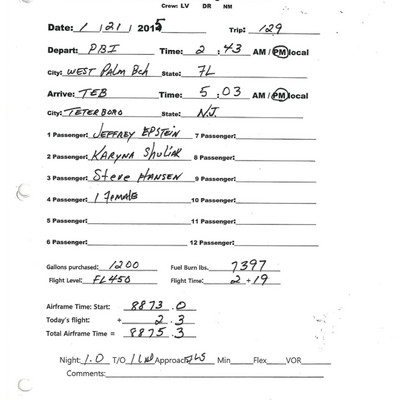 Crew: LV DR NM
Date: 1 / 21 / 2015 Trip: 129
Depart: PBI Time: 2 : 43 AM / PM local
City: WEST PALM Bch State: FL
Arrive: TEB Time: 5 : 03 AM / PM local
City: TETERBORO State: N.J.
1 Passenger: JEFFREY EPSTEIN 7 Passenger:
2 Passenger: KARYNA Shuliak 8 Passenger:
3 Passenger: Steve HANSEN 9 Passenger:
4 Passenger: 1 FEMALE 10 Passenger:
5 Passenger: 11 Passenger:
6 Passenger: 12 Passenger:
Gallons purchased: 1200 Fuel Burn lbs. 7397
Flight Level: FL450 Flight Time: 2 + 19
Airframe Time: Start: 8873 .0
Today's flight: + 2 . 3
Total Airframe Time = 8875 . 3
Night: 1.0 T/O 1 Approach: ILS Min Flex VOR
Comments: